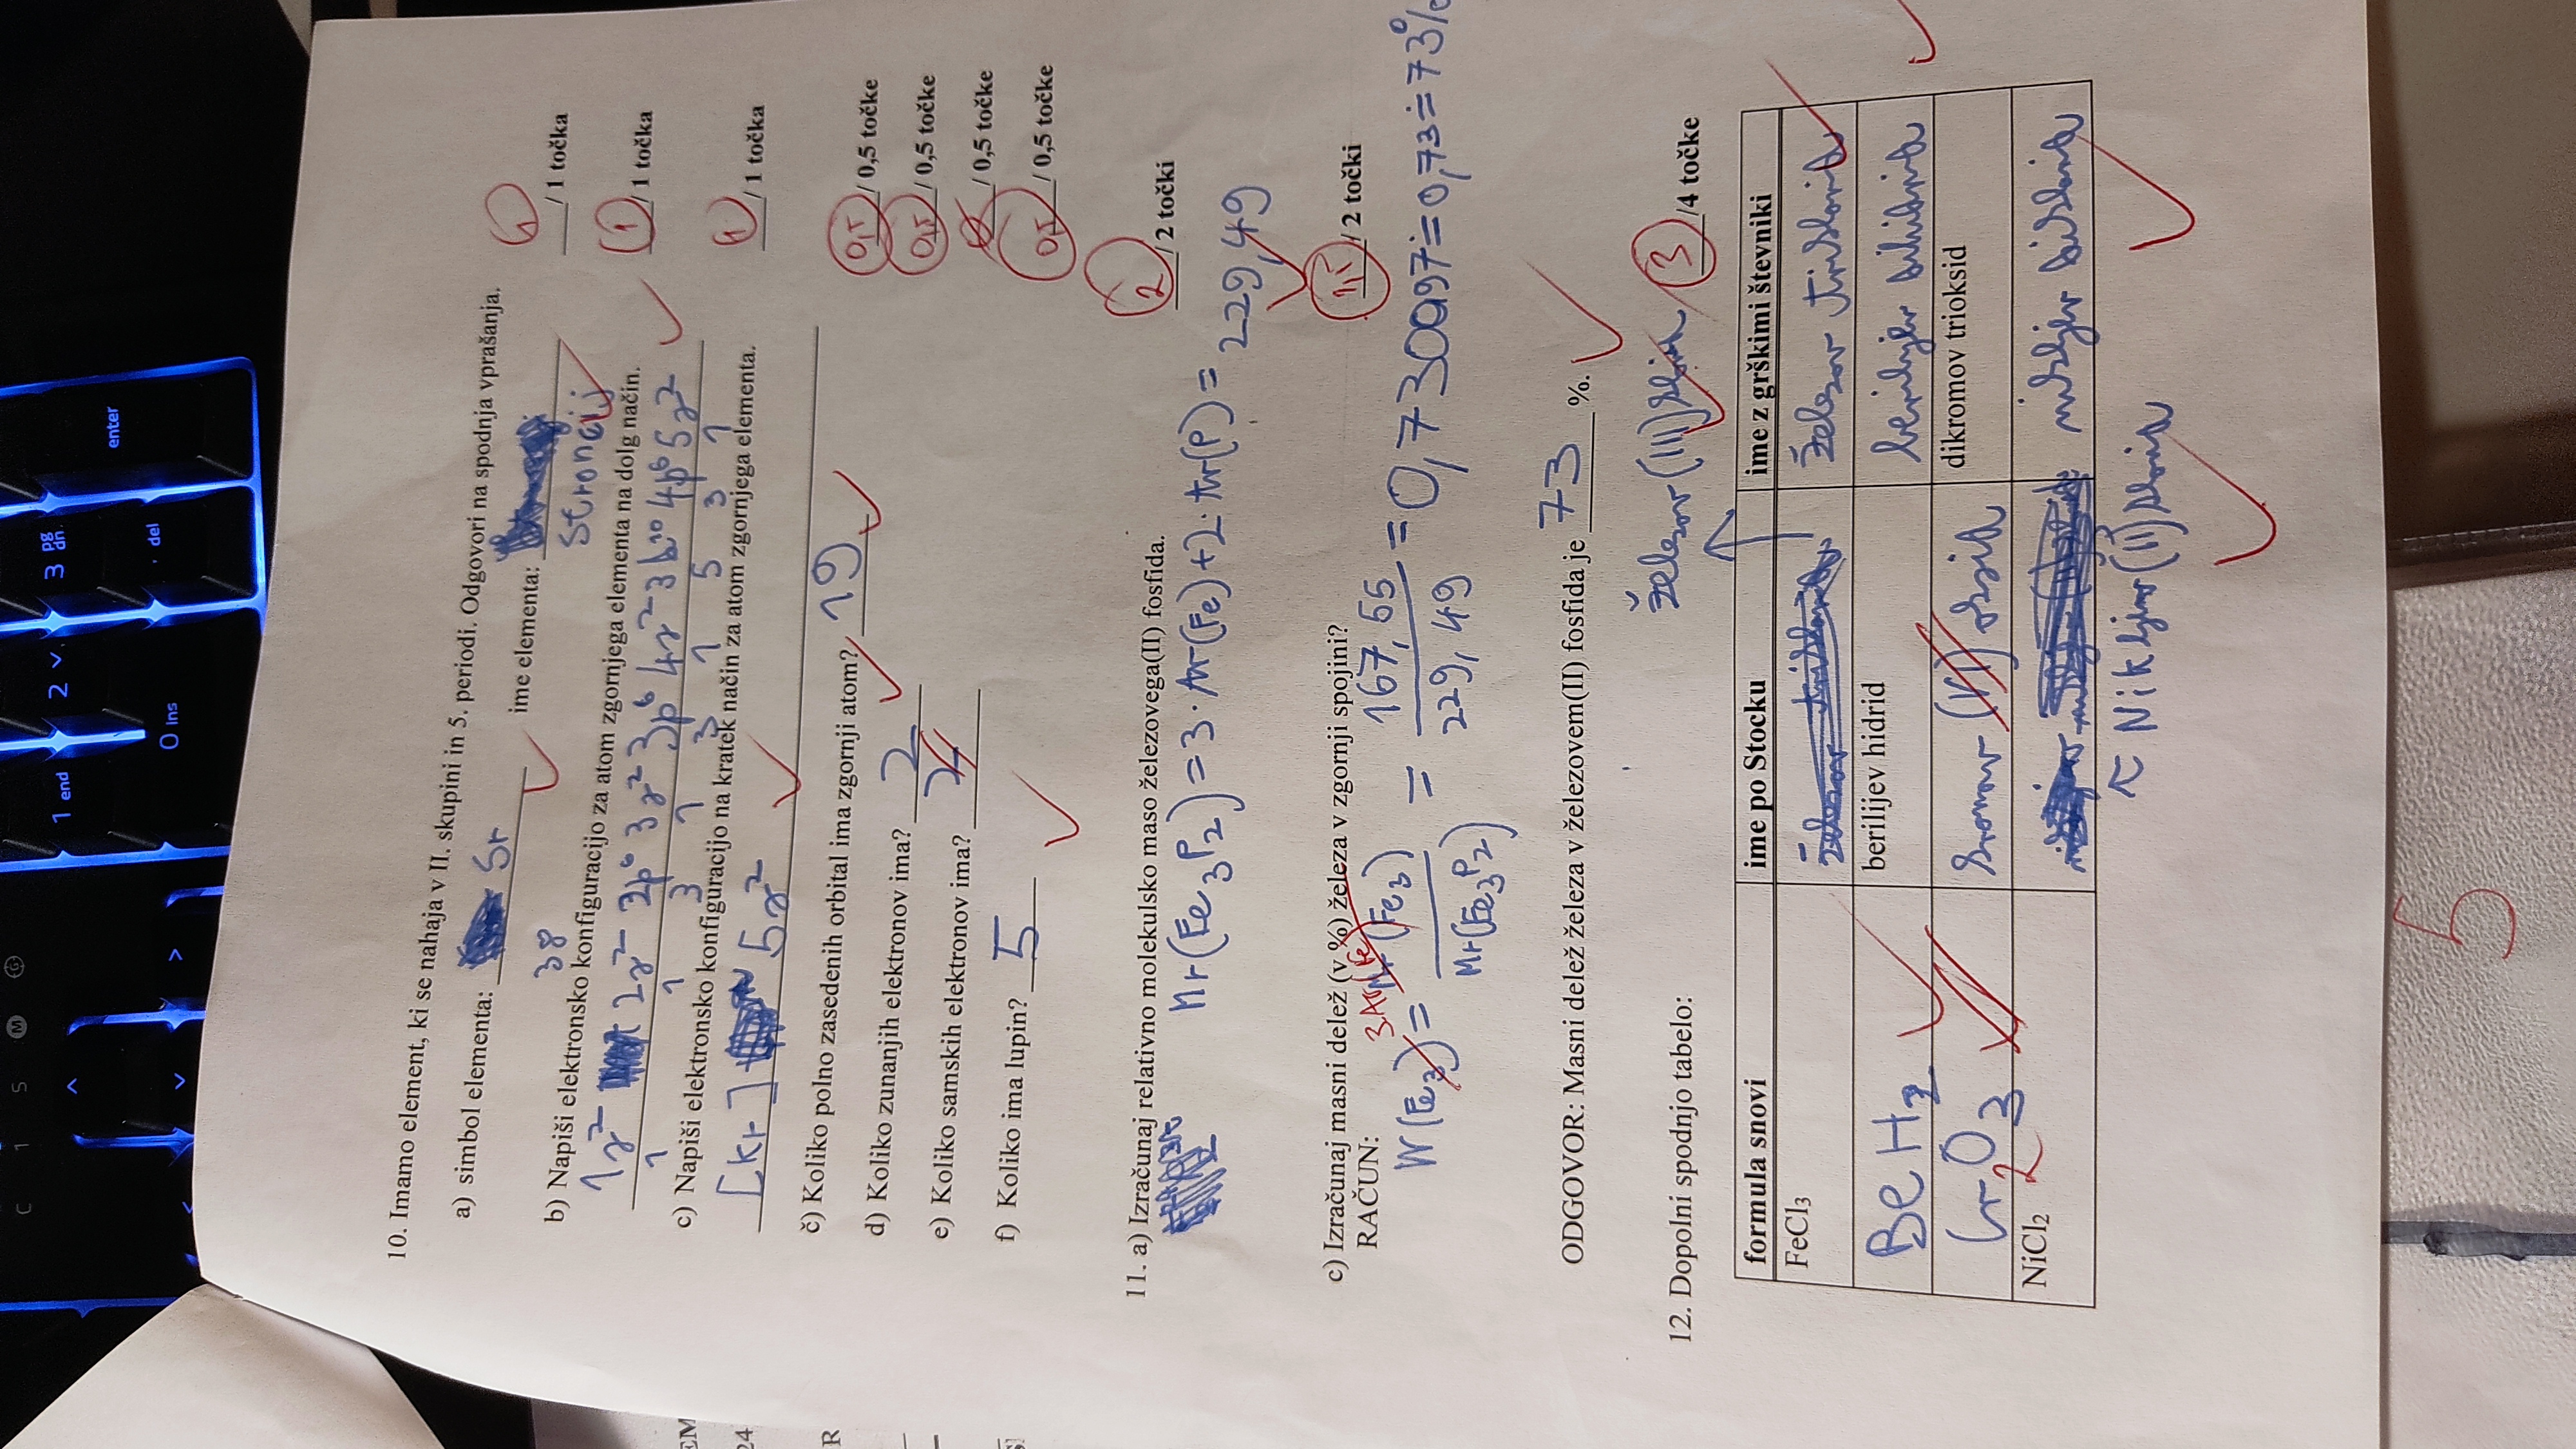 C 1 S M G
1 end 2 3 pg dn
enter
0 Ins . del
10. Imamo element, ki se nahaja v II. skupini in 5. periodi. Odgovori na spodnja vprašanja.
a) simbol elementa: Sr ime elementa: stroncij 1 / 1 točka
38
b) Napiši elektronsko konfiguracijo za atom zgornjega elementa na dolg način.
1s² 2s² 2p⁶ 3s² 3p⁶ 4s² 3d¹⁰ 4p⁶ 5s² 1 / 1 točka
1 1 3 1 3 1 5 3 1
c) Napiši elektronsko konfiguracijo na kratek način za atom zgornjega elementa.
[Kr] 5s² 1 / 1 točka
č) Koliko polno zasedenih orbital ima zgornji atom? 19 0,5 / 0,5 točke
d) Koliko zunanjih elektronov ima? 2 0,5 / 0,5 točke
e) Koliko samskih elektronov ima? 2 0 / 0,5 točke
f) Koliko ima lupin? 5 0,5 / 0,5 točke
11. a) Izračunaj relativno molekulsko maso železovega(II) fosfida. 2 / 2 točki
Mr(Fe₃P₂) = 3 · Ar(Fe) + 2 · Ar(P) =
229,49
c) Izračunaj masni delež (v %) železa v zgornji spojini? 1,5 / 2 točki
RAČUN:
3.Ar(Fe)
W(Fe₃) = Mr(Fe₃) / Mr(Fe₃P₂) = 167,55 / 229,49 = 0,730097 ≐ 0,73 ≐ 73%
ODGOVOR: Masni delež železa v železovem(II) fosfida je 73 %.
železov (III) klorid
12. Dopolni spodnjo tabelo: 3 /4 točke
formula snovi ime po Stocku ime z grškimi števniki
FeCl₃ železov triklorid
BeH₂ berilijev hidrid berilijev dihidrid
Cr₂O₃ kromov (VI) oksid dikromov trioksid
NiCl₂ nikljev diklorid
Nikljev (II) klorid
5
EM
24
R